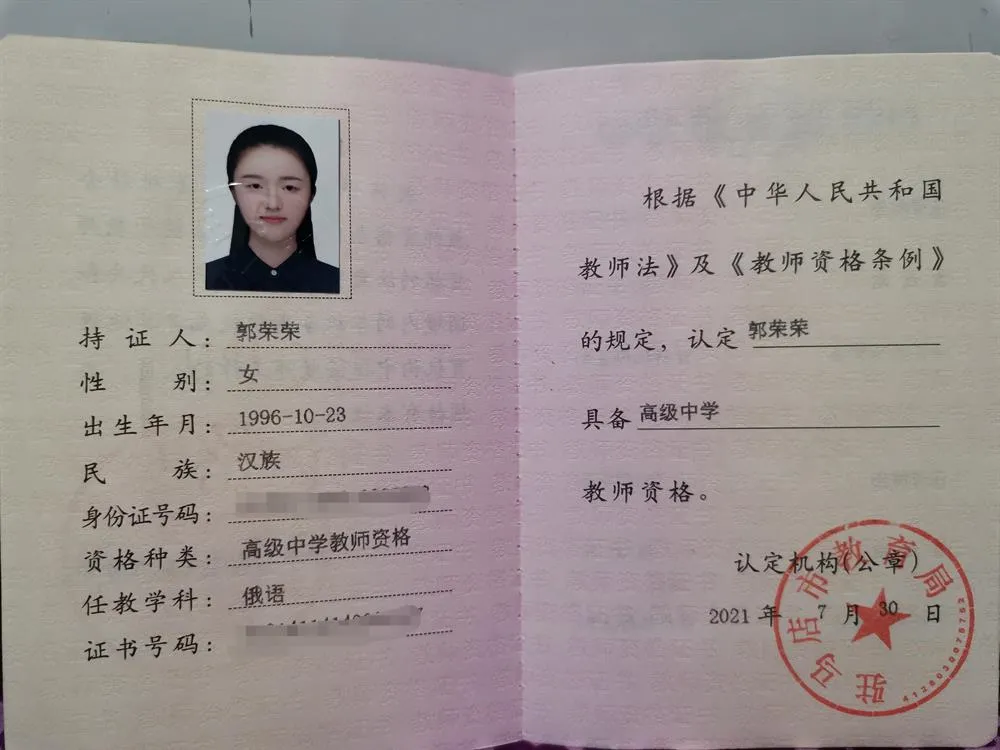 持证人：郭荣荣
性别：女
出生年月：1996-10-23
民族：汉族
身份证号码：
资格种类：高级中学教师资格
任教学科：俄语
证书号码：
根据《中华人民共和国
教师法》及《教师资格条例》
的规定，认定 郭荣荣
具备 高级中学
教师资格。
认定机构(公章)
2021 年 7 月 30 日
驻马店市教育局